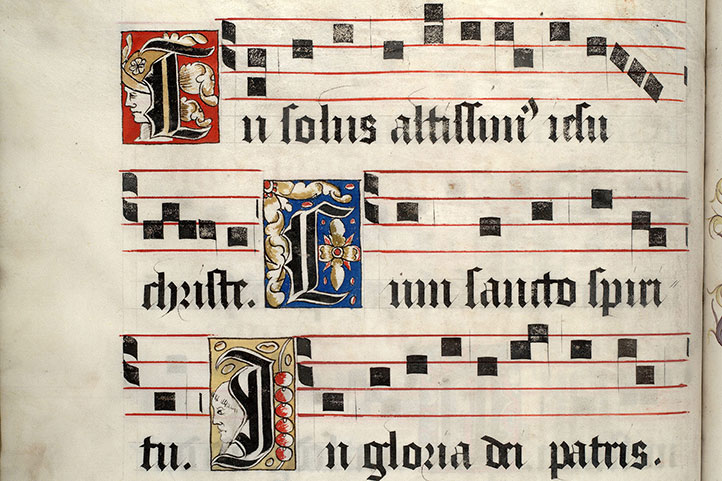 Tu solus altissim⁹ iesu
christe. Cum sancto spiri
tu. In gloria dei patris.